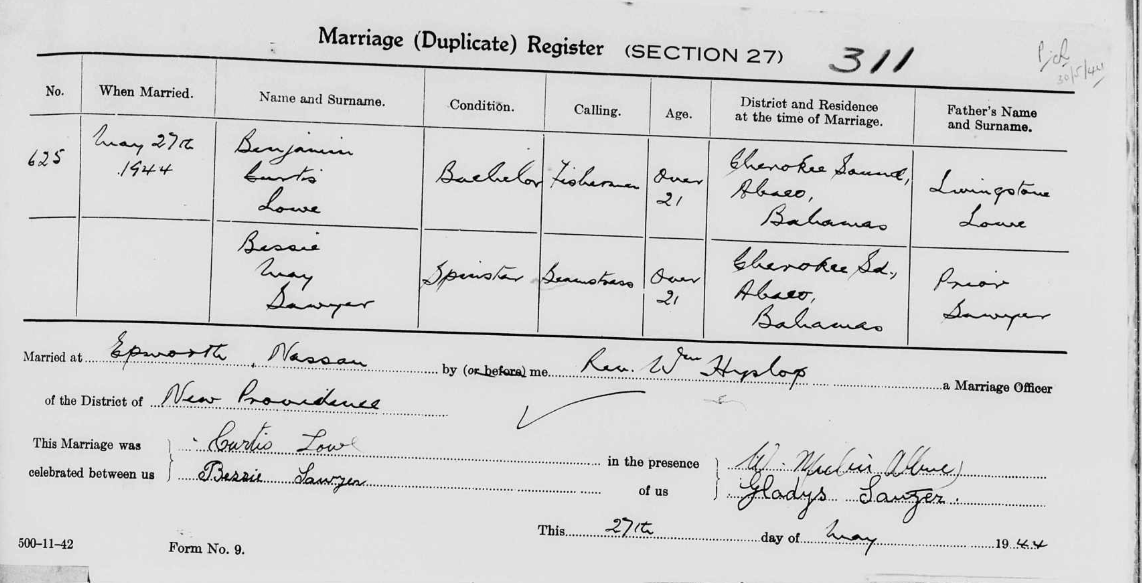 Marriage (Duplicate) Register (SECTION 27) 311
30/5/44
No. When Married. Name and Surname. Condition. Calling. Age. District and Residence at the time of Marriage. Father's Name and Surname.
625 May 27th 1944 Benjamin Curtis Lowe Bachelor Fisherman Over 21 Cherokee Sound, Abaco, Bahamas Livingstone Lowe
Bessie May Sawyer Spinster Seamstress Over 21 Cherokee Sd., Abaco, Bahamas Prior Sawyer
Married at Epworth, Nassau by (or before) me Rev. Wm Hyslop a Marriage Officer
of the District of New Providence
This Marriage was celebrated between us
Curtis Lowe
Bessie Sawyer
in the presence of us
W.
Gladys Sawyer.
This 27th day of May 1944
500-11-42 Form No. 9.